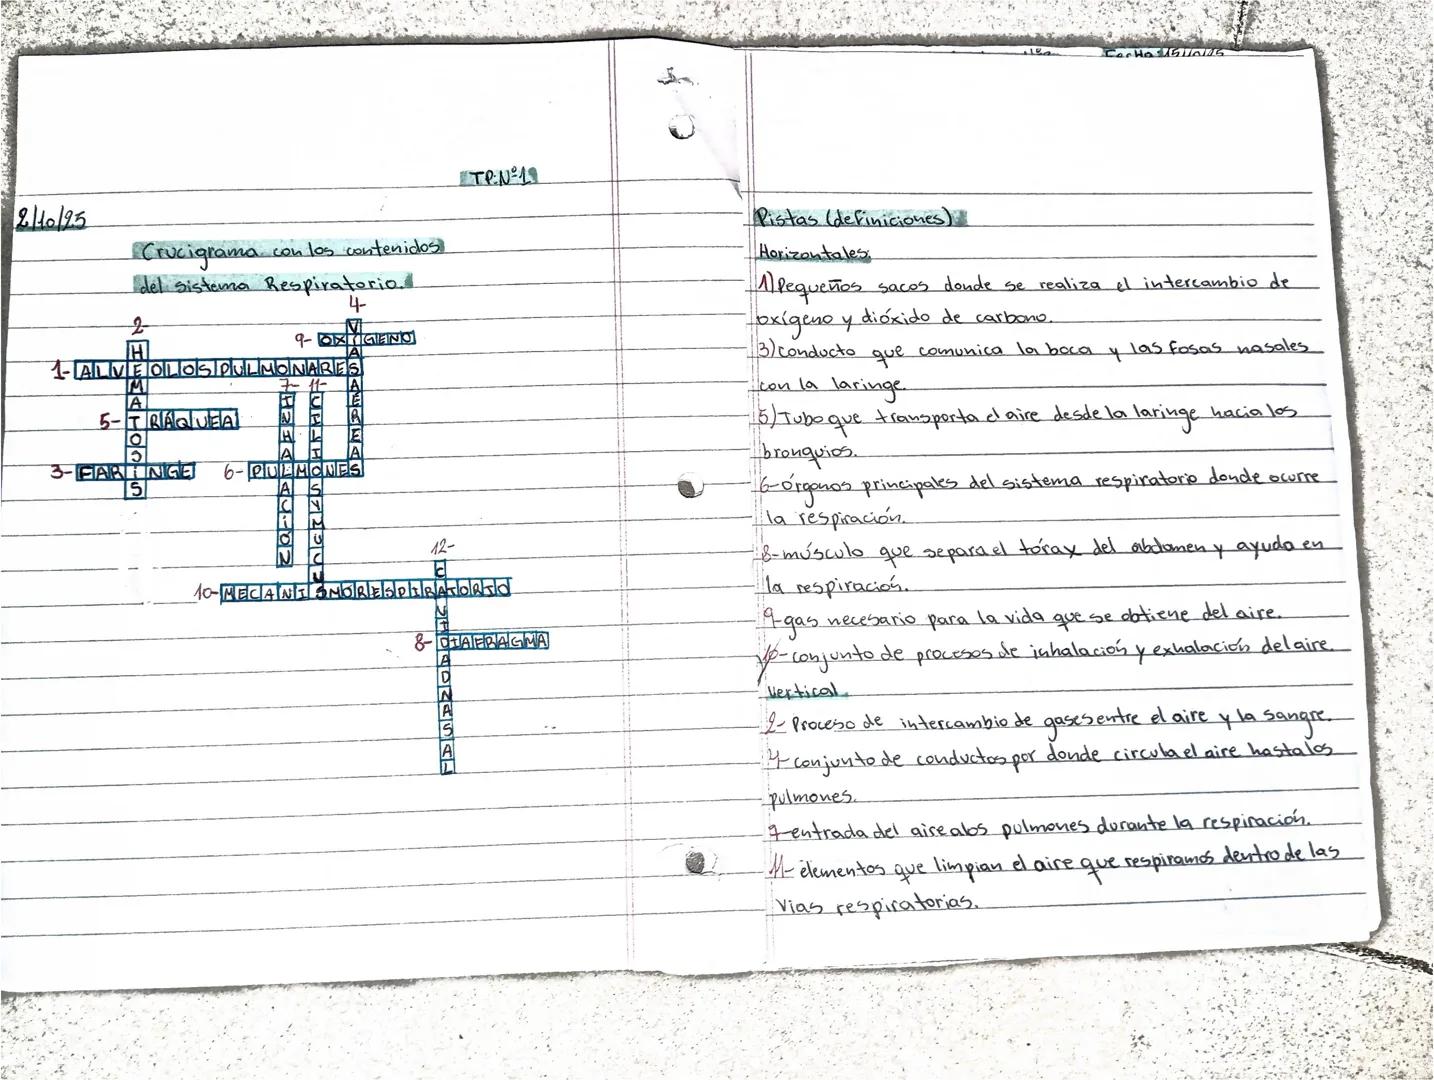 TP:Nº1
2/10/25
Crucigrama con los contenidos
del sistema Respiratorio.
4-
2-
9- OXIGENO
1- ALVEOLOSPULMONARES
7- 11-
5- TRÁQUEA
3- FARINGE 6- PULMONES
12-
10- MECANISMORESPIRATORIO
8- DIAFRAGMA
HEMATOSIS
VIASAEREAS
INHALACIÓN
CILIOSYMUCUS
CAVIDADNASAL
Fecha: 15/10/25
Pistas (definiciones)
Horizontales
1) Pequeños sacos donde se realiza el intercambio de
oxígeno y dióxido de carbono.
3) conducto que comunica la boca y las fosas nasales
con la laringe
5) Tubo que transporta el aire desde la laringe hacia los
bronquios.
6- órganos principales del sistema respiratorio donde ocurre
la respiración.
8- músculo que separa el tórax del abdomen y ayuda en
la respiración.
9- gas necesario para la vida que se obtiene del aire.
10- conjunto de procesos de inhalación y exhalación del aire.
Vertical
2- Proceso de intercambio de gases entre el aire y la sangre.
4- conjunto de conductos por donde circula el aire hasta los
pulmones.
7- entrada del aire a los pulmones durante la respiración.
11- elementos que limpian el aire que respiramos dentro de las
Vias respiratorias.